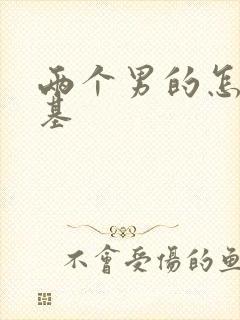 两个男的怎
基
不會受傷的魚